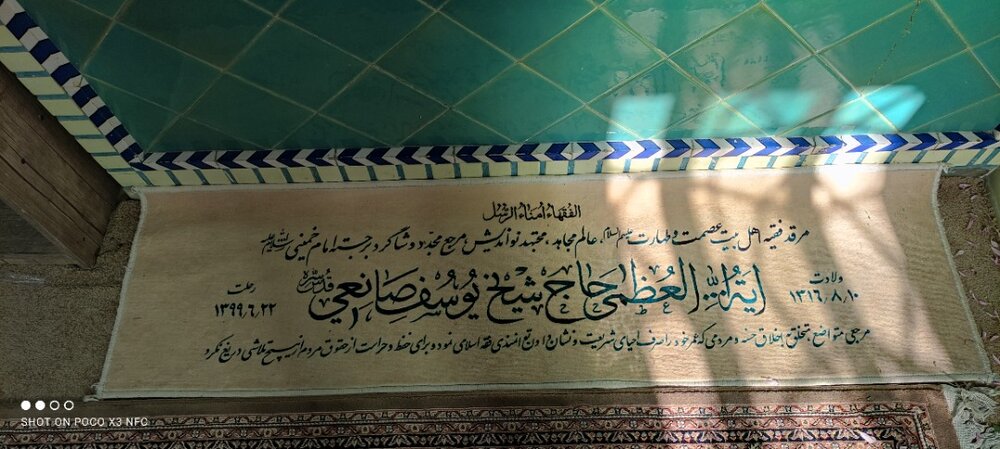 الفقهاء أمناء الرسل
مرقد فقیه اهل بیت عصمت و طهارت علیهم‌السلام، عالم مجاهد، مجتهد نواندیش، مرجع مجدّد و شاگرد برجسته امام خمینی سلام‌الله‌علیه
آیة‌الله العظمی حاج شیخ یوسف صانعی قدّس‌سرّه
ولادت
۱۳۱۶،۸،۱۰
رحلت
۱۳۹۹،۶،۲۲
مرجعی متواضع متخلق به اخلاق حسنه و مردمی که عمر خود را صرف احیای شریعت و نشان دادن توانمندی فقه اسلامی نمود و برای حفظ و حراست از حقوق مردم از هیچ تلاشی دریغ نکرد
SHOT ON POCO X3 NFC